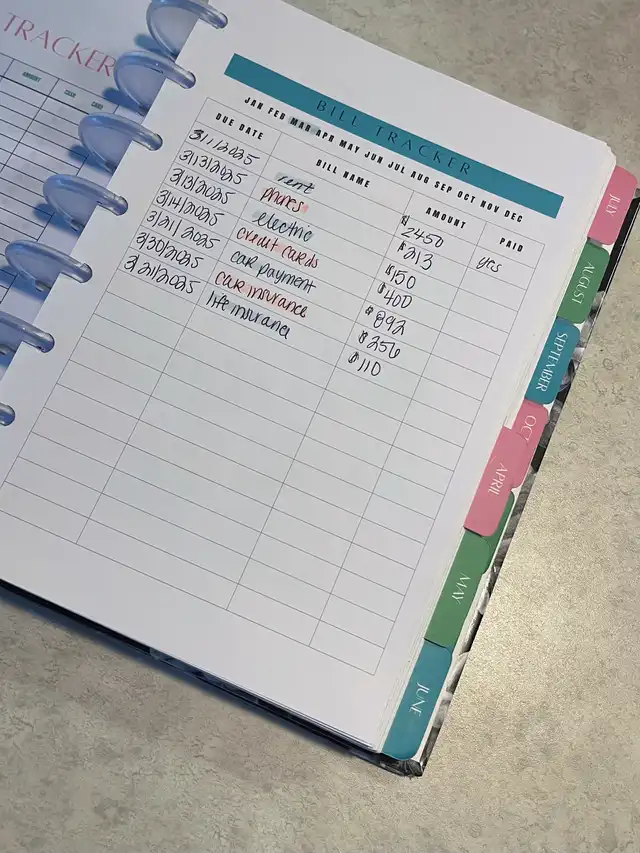 TRACKER
AMOUNT CASH CARD
BILL TRACKER
JAN FEB MAR APR MAY JUN JUL AUG SEP OCT NOV DEC
DUE DATE BILL NAME AMOUNT PAID
3/1/2025 rent $2450 yes
3/13/2025 phones $213
3/13/2025 electric $150
3/14/2025 credit cards $400
3/21/2025 car payment $892
3/30/2025 car insurance $256
3/21/2025 life insurance $110
JULY
AUGUST
SEPTEMBER
OCT
APRIL
MAY
JUNE